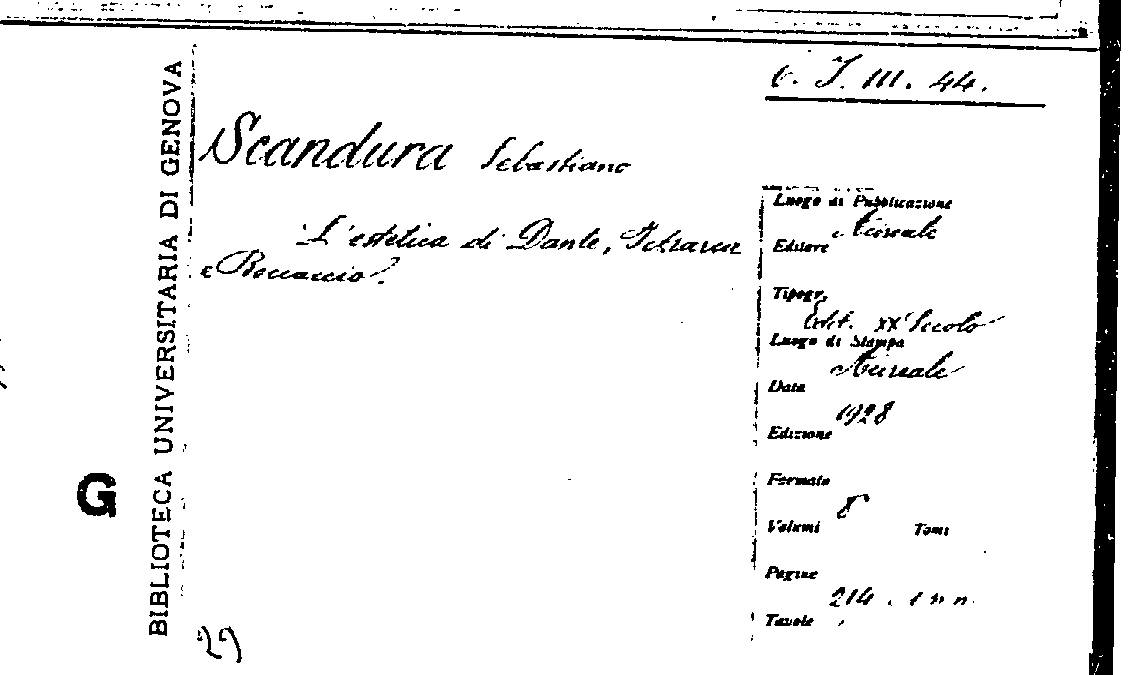 6. I. III. 44.
BIBLIOTECA UNIVERSITARIA DI GENOVA
G
Scandura Sebastiano
L'estetica di Dante, Petrarca
e Boccaccio.
Luogo di Pubblicazione
Acireale
Editore
Tipogr.
Edit. XX Secolo
Luogo di Stampa
Acireale
Data
1928
Edizione
Formato
8
Volumi Tomi
Pagine
214. 1 n n.
Tavole
29